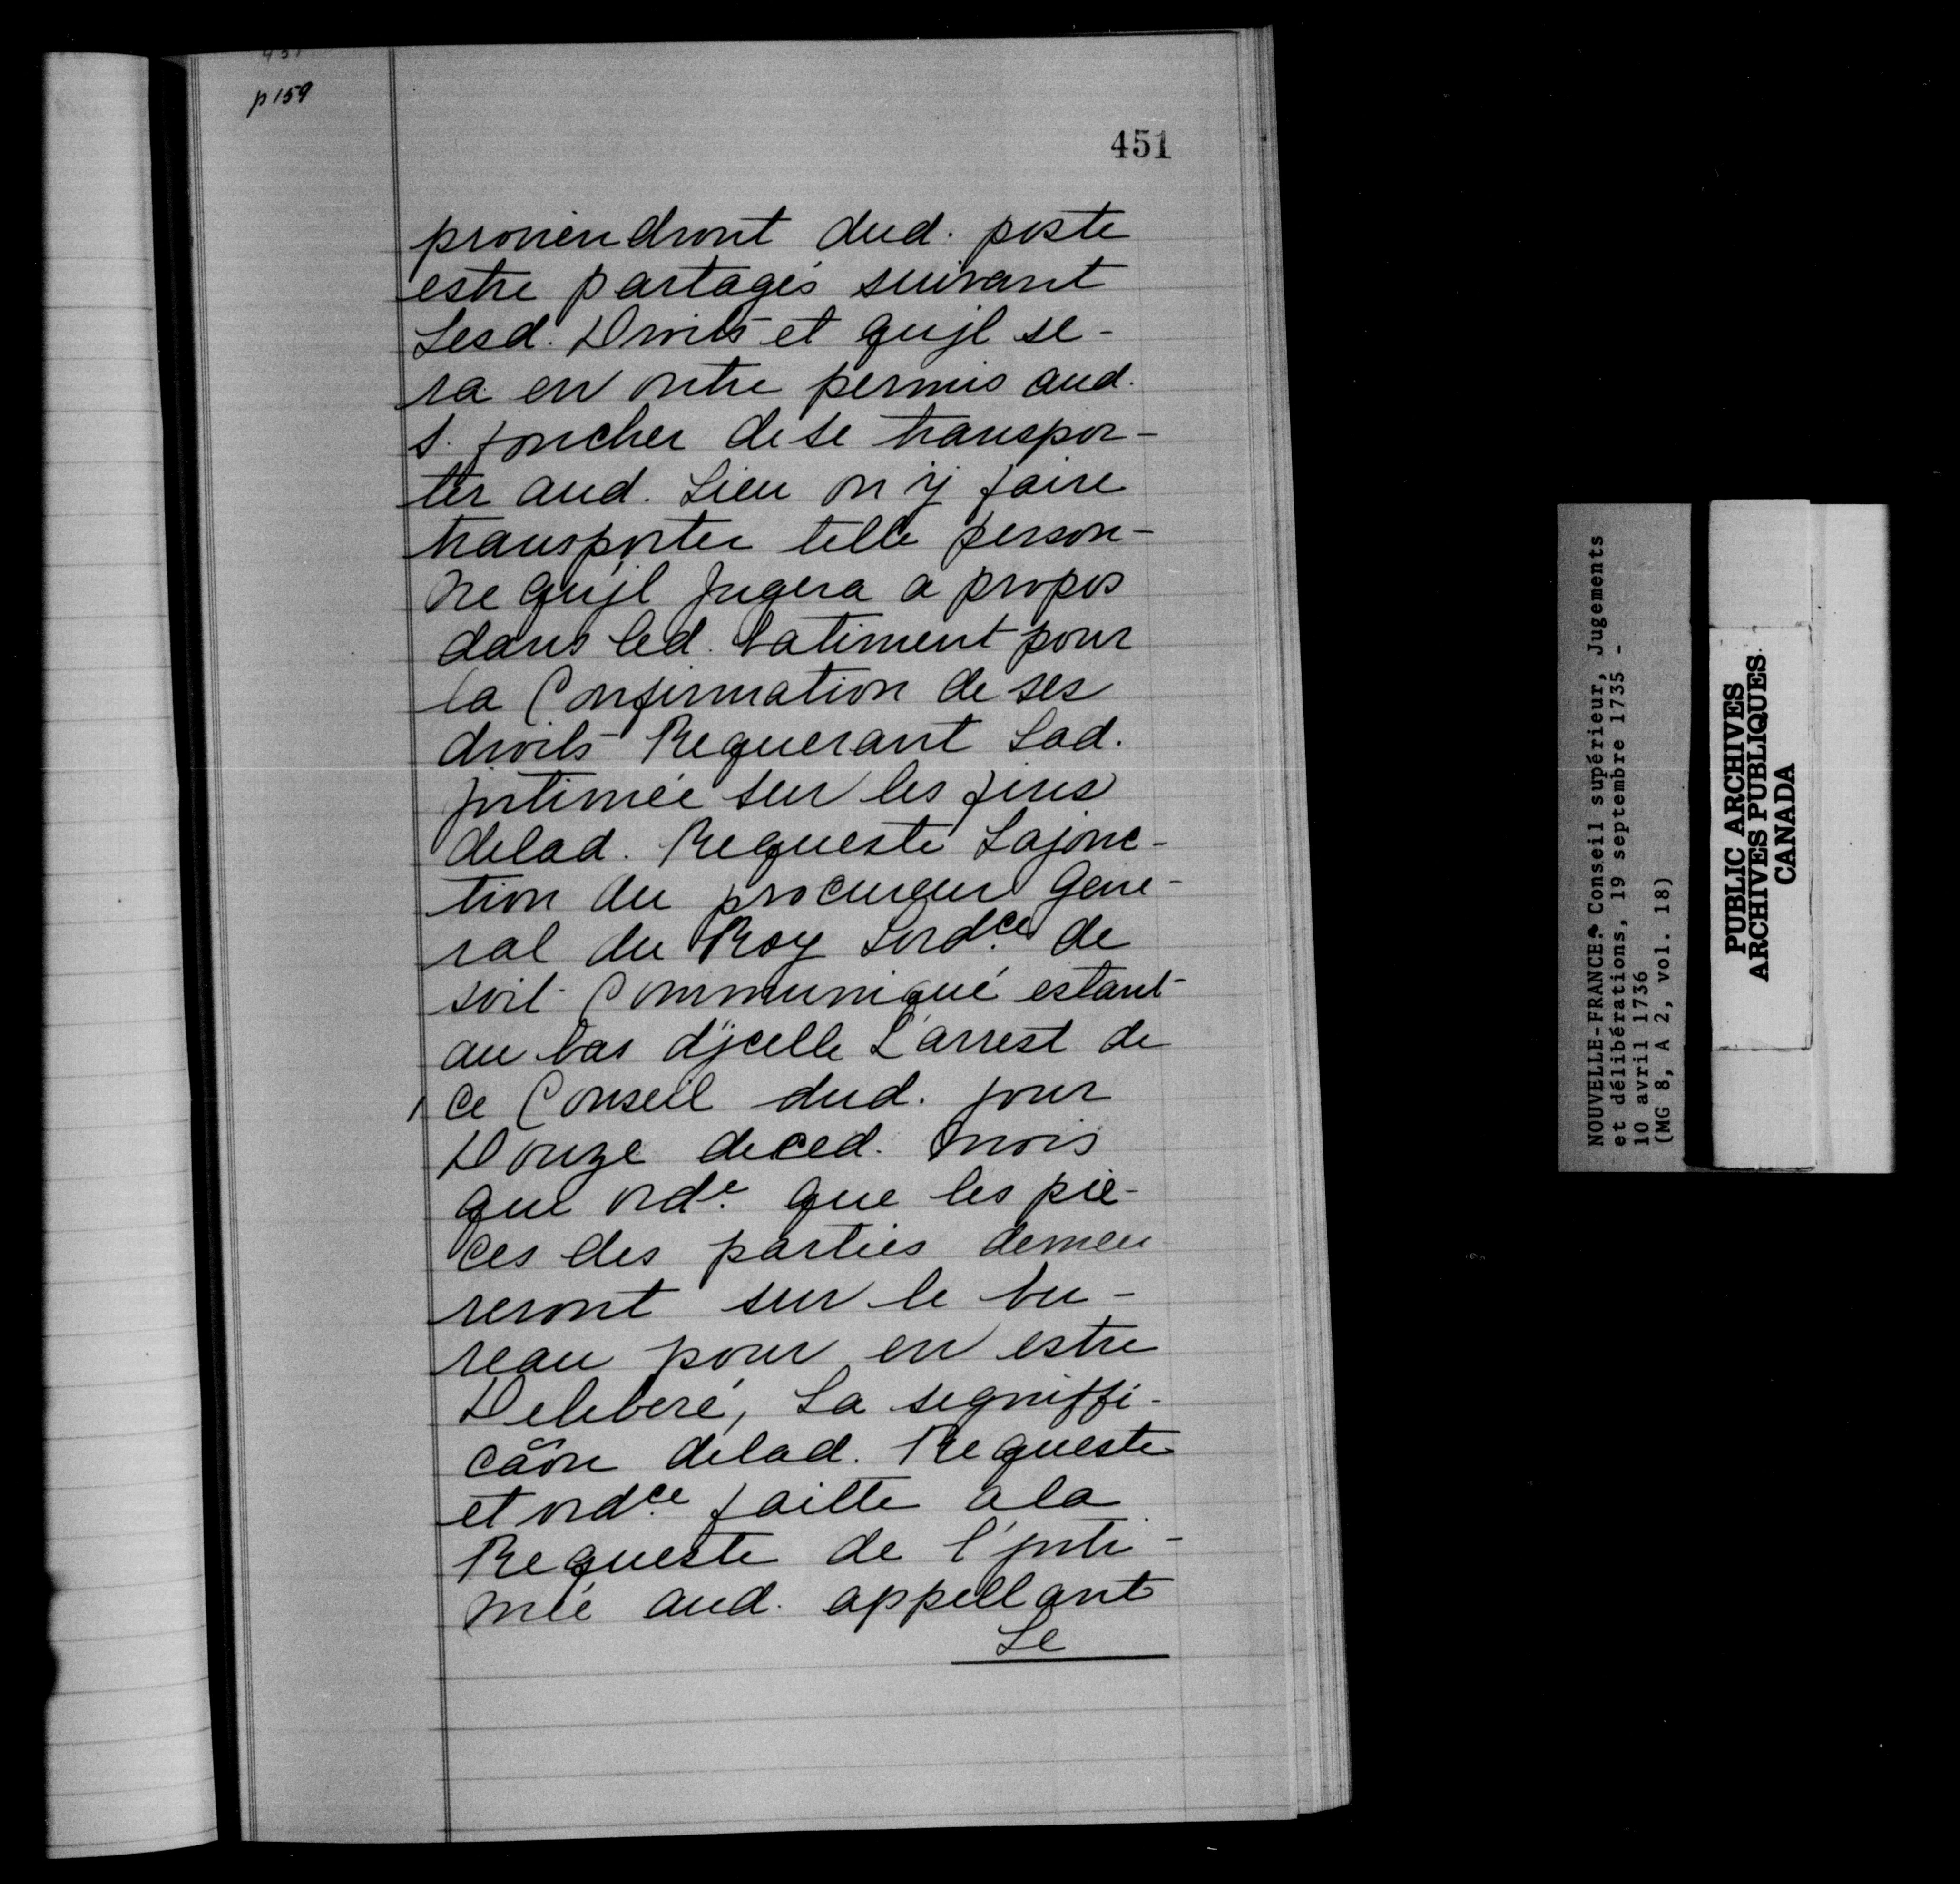 p 159
451
proviendront dud. poste
estre partagés suivant
Lesd. Droits et qujl se-
ra en outre permis aud.
s. foucher de se transpor-
ter aud. Lieu ou ÿ faire
transporter telle person-
ne qujl jugera a propos
dans led. batiment pour
la Confirmation de ses
droits Requerant Lad.
jntimée sur les fins
delad. Requeste Lajonc-
tion du procureur Gene-
ral du Roy Lordce de
soit Communiqué estant
au bas d'jcelle L'arrest de
ce Conseil dud. jour
Douze deced. mois
que orde. que les pie-
ces des parties demeu
reront sur le bu-
reau pour en estre
Deleberé, La signiffi-
cãon delad. Requeste
et ordce faitte a la
Requeste de l'jnti-
mée aud. appellant
Le
NOUVELLE-FRANCE. Conseil supérieur, Jugements
et délibérations, 19 septembre 1735 -
10 avril 1736
(MG 8, A 2, vol. 18)
PUBLIC ARCHIVES
ARCHIVES PUBLIQUES
CANADA